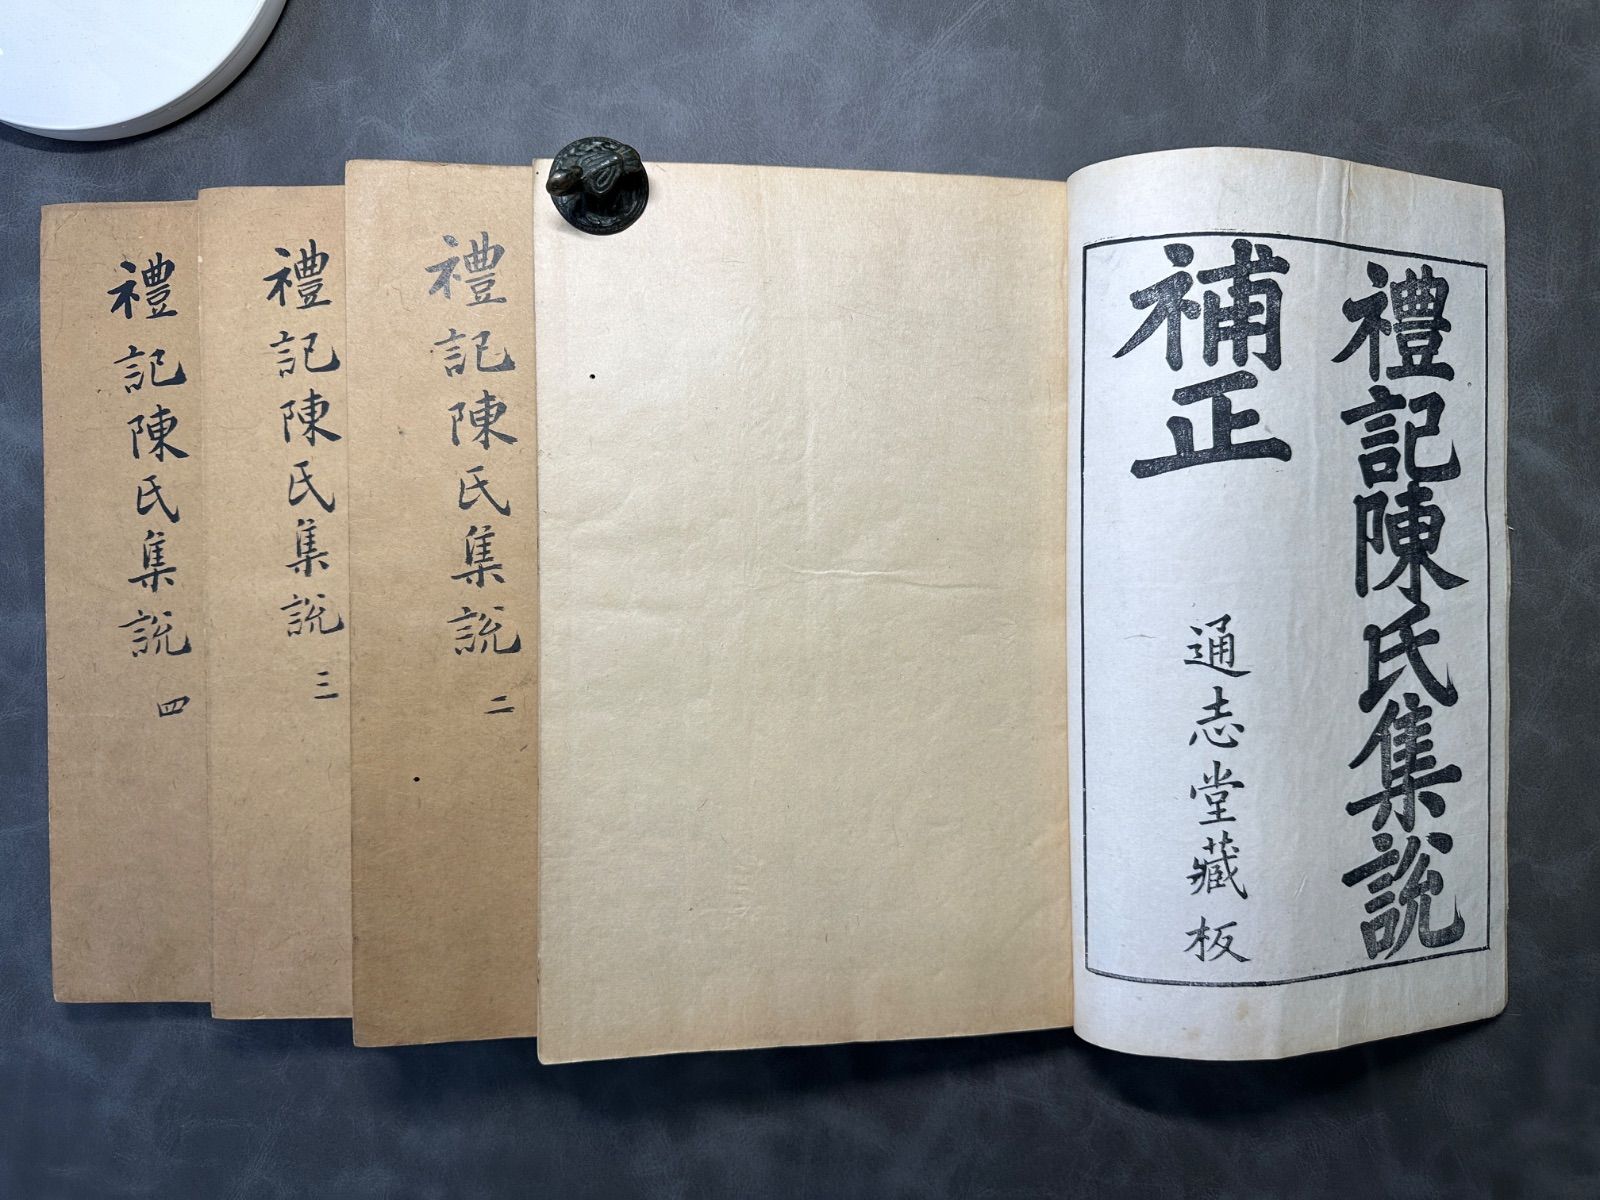 禮記陳氏集說
補正
通志堂藏板
禮記陳氏集說 二
禮記陳氏集說 三
禮記陳氏集說 四